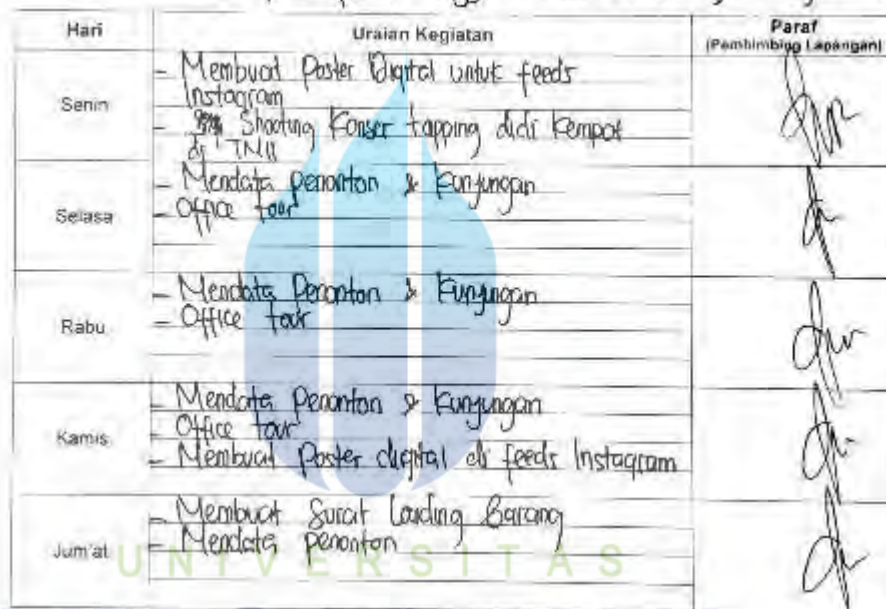 Hari Uraian Kegiatan Paraf
(Pembimbing Lapangan)
Senin
- Membuat Poster Digital untuk feeds
Instagram
- Shooting Konser tapping didi Kempot
di TMII
Selasa
- Mendata penonton & Kunjungan
- Office tour
Rabu
- Mendata Penonton & Kunjungan
- Office tour
Kamis
- Mendata Penonton & Kunjungan
- Office tour
- Membuat Poster digital di feeds Instagram
Jum'at
- Membuat Surat Loading Barang
- Mendata penonton
UNIVERSITAS